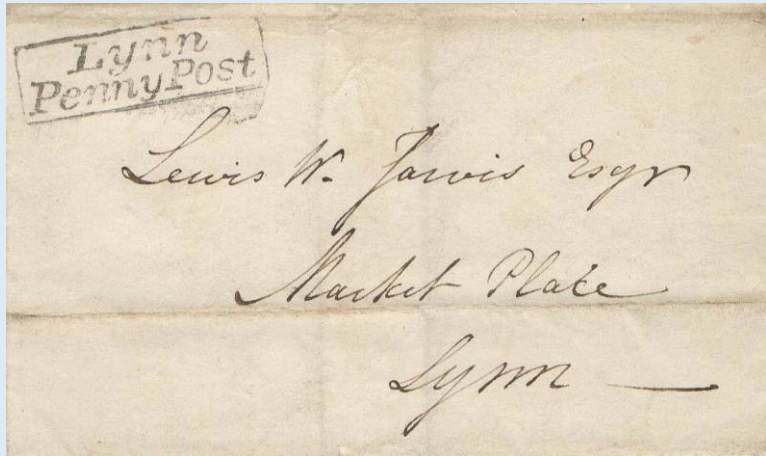 Lynn
Penny Post
Lewis W. Jarvis Esqr
Market Place
Lynn